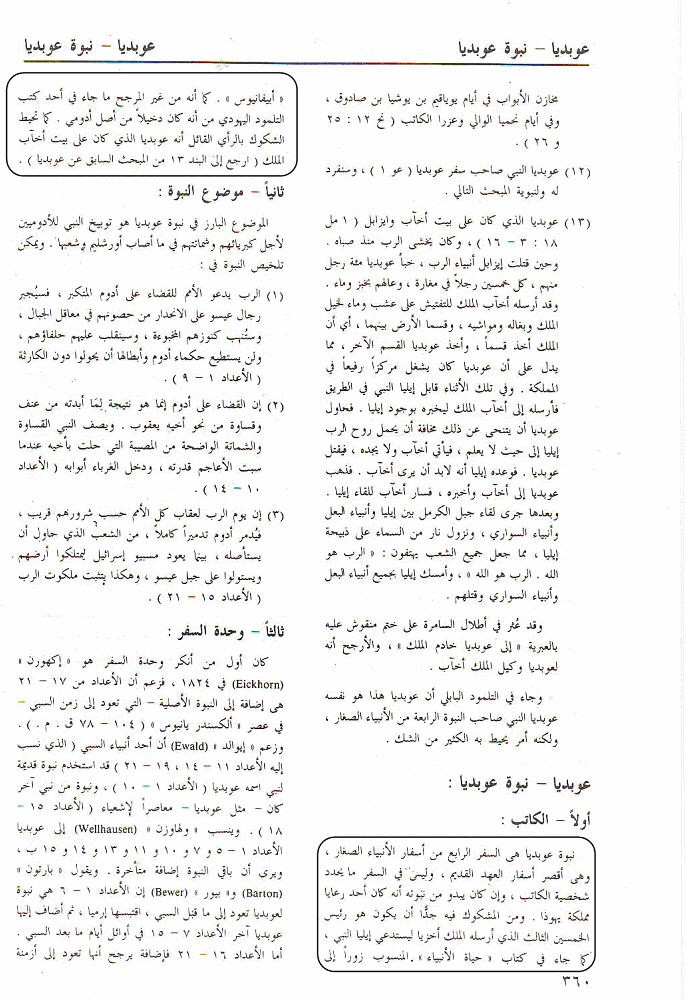 عوبديا – نبوة عوبديا
عوبديا – نبوة عوبديا
مخازن الأبواب في أيام يوياقيم بن يوشيا بن صادوق ،
وفي أيام نحميا الوالي وعزرا الكاتب ( نح ١٢ : ٢٥
و ٢٦ ) .
(١٢) عوبديا النبي صاحب سفر عوبديا ( عو ١ ) ، وسنفرد
له ولنبوية المبحث التالي .
(١٣) عوبديا الذي كان على بيت أخآب وإيزابل ( ١ مل
١٨ : ٣ – ١٦ ) ، وكان يخشى الرب منذ صباه .
وحين قتلت إيزابل أنبياء الرب ، خبأ عوبديا مئة رجل
منهم ، كل خمسين رجلاً في مغارة ، وعالهم بخبز وماء .
وقد أرسله أخآب الملك للتفتيش على عشب وماء لخيل
الملك وبغاله ومواشيه ، وقسما الأرض بينهما ، أي أن
الملك أخذ قسماً ، وأخذ عوبديا القسم الآخر ، مما
يدل على أن عوبديا كان يشغل مركزاً رفيعاً في
المملكة . وفي تلك الأثناء قابل إيليا النبي في الطريق
فأرسله إلى أخآب الملك ليخبره بوجود إيليا . فحاول
عوبديا أن يتنحى عن ذلك مخافة أن يحمل روح الرب
إيليا إلى حيث لا يعلم ، فيأتي أخآب ولا يجده ، فيقتل
عوبديا . فوعده إيليا أنه لابد أن يرى أخآب . فذهب
عوبديا إلى أخآب وأخبره ، فسار أخآب للقاء إيليا .
وبعدها جرى لقاء جبل الكرمل بين إيليا وأنبياء البعل
وأنبياء السواري ، ونزول نار من السماء على ذبيحة
إيليا ، مما جعل جميع الشعب يهتفون : « الرب هو
الله . الرب هو الله » ، وأمسك إيليا بجميع أنبياء البعل
وأنبياء السواري وقتلهم .
وقد عُثر في أطلال السامرة على ختم منقوش عليه
بالعبرية « إلى عوبديا خادم الملك » ، والأرجح أنه
لعوبديا وكيل الملك أخآب .
وجاء في التلمود البابلي أن عوبديا هذا هو نفسه
عوبديا النبي صاحب النبوة الرابعة من الأنبياء الصغار ،
ولكنه أمر يحيط به الكثير من الشك .
عوبديا – نبوة عوبديا :
أولاً – الكاتب :
نبوة عوبديا هي السفر الرابع من أسفار الأنبياء الصغار ،
وهي أقصر أسفار العهد القديم ، وليس في السفر ما يحدد
شخصية الكاتب ، وإن كان يبدو من نبوته أنه كان أحد رعايا
مملكة يهوذا . ومن المشكوك فيه جدًّا أن يكون هو رئيس
الخمسين الثالث الذي أرسله الملك أخزيا ليستدعي إيليا النبي ،
كما جاء في كتاب « حياة الأنبياء » المنسوب زوراً إلى
« أبيفانيوس » . كما أنه من غير المرجح ما جاء في أحد كتب
التلمود اليهودي من أنه كان دخيلاً من أصل أدومي . كما تحيط
الشكوك بالرأي القائل أنه عوبديا الذي كان على بيت أخآب
الملك ( ارجع إلى البند ١٣ من المبحث السابق عن عوبديا ) .
ثانياً – موضوع النبوة :
الموضوع البارز في نبوة عوبديا هو توبيخ النبي للأدوميين
لأجل كبريائهم وشماتتهم في ما أصاب أورشليم وشعبها . ويمكن
تلخيص النبوة في :
(١) الرب يدعو الأمم للقضاء على أدوم المتكبر ، فسيُجبر
رجال عيسو على الانحدار من حصونهم في معاقل الجبال ،
وستُنهب كنوزهم المخبوءة ، وسينقلب عليهم حلفاؤهم ،
ولن يستطيع حكماء أدوم وأبطالها أن يحولوا دون الكارثة
( الأعداد ١ – ٩ ) .
(٢) إن القضاء على أدوم إنما هو نتيجة لِمَا أبدته من عنف
وقساوة من نحو أخيه يعقوب . ويصف النبي القساوة
والشماتة الواضحة من المصيبة التي حلت بأخيه عندما
سبت الأعاجم قدرته ، ودخل الغرباء أبوابه ( الأعداد
١٠ – ١٤ ) .
(٣) إن يوم الرب لعقاب كل الأمم حسب شرورهم قريب ،
فيُدمر أدوم تدميراً كاملاً ، من الشعب الذي حاول أن
يستأصله ، بينما يعود مسبيو إسرائيل ليمتلكوا أرضهم
ويستولوا على جبل عيسو ، وهكذا يتثبت ملكوت الرب
( الأعداد ١٥ – ٢١ ) .
ثالثاً – وحدة السفر :
كان أول من أنكر وحدة السفر هو « إكهورن »
(Eickhorn) في ١٨٢٤ ، فزعم أن الأعداد من ١٧ – ٢١
هى إضافة إلى النبوة الأصلية – التي تعود إلى زمن السبي –
في عصر « ألكسندر يانيوس » ( ١٠٤ – ٧٨ ق . م . ) .
وزعم « إيوالد » (Ewald) أن أحد أنبياء السبي ( الذي نسب
إليه الأعداد ١١ – ١٤ ، ١٩ – ٢١ ) قد استخدم نبوة قديمة
لنبي اسمه عوبديا ( الأعداد ١ – ١٠ ) ، ونبوة من نبي آخر
كان – مثل عوبديا – معاصراً لإشعياء ( الأعداد ١٥ –
١٨ ) . وينسب « ولهاوزن » (Wellhausen) إلى عوبديا
الأعداد ١ – ٥ و ٧ و ١٠ و ١١ و ١٣ و ١٤ و ١٥ ب ،
ويرى أن باقي النبوة إضافة متأخرة . ويقول « بارتون »
(Barton) و« بيور » (Bewer) إن الأعداد ١ – ٦ هي نبوة
لعوبديا تعود إلى ما قبل السبي ، اقتبسها إرميا ، ثم أضاف إليها
عوبديا آخر الأعداد ٧ – ١٥ في أوائل أيام ما بعد السبي .
أما الأعداد ١٦ – ٢١ فإضافة يرجح أنها تعود إلى أزمنة
٣٦٠